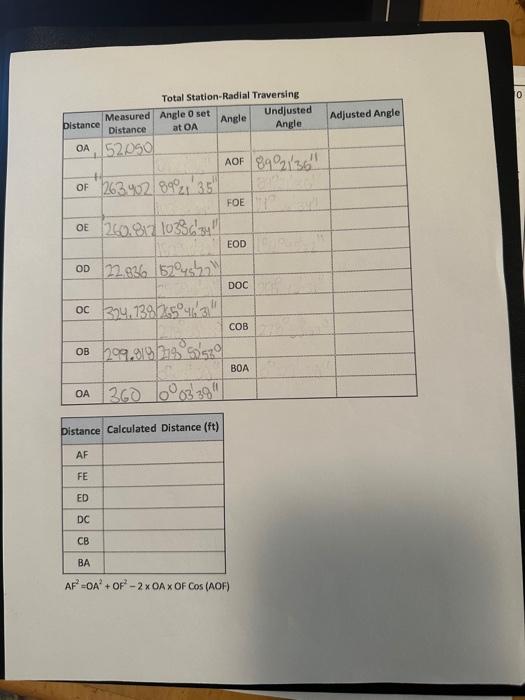 Total Station-Radial Traversing
Distance Measured Distance Angle 0 set at OA Angle Undjusted Angle Adjusted Angle
OA 52.050
AOF 89°21'36"
OF 263.402 89°21'35"
FOE
OE 260.817 103°56'34"
EOD
OD 22.836
DOC
OC 324.738 265°46'31"
COB
OB 299.819
BOA
OA 360 0°03'38"
Distance Calculated Distance (ft)
AF
FE
ED
DC
CB
BA
AF²=OA² + OF² – 2 x OA x OF Cos (AOF)